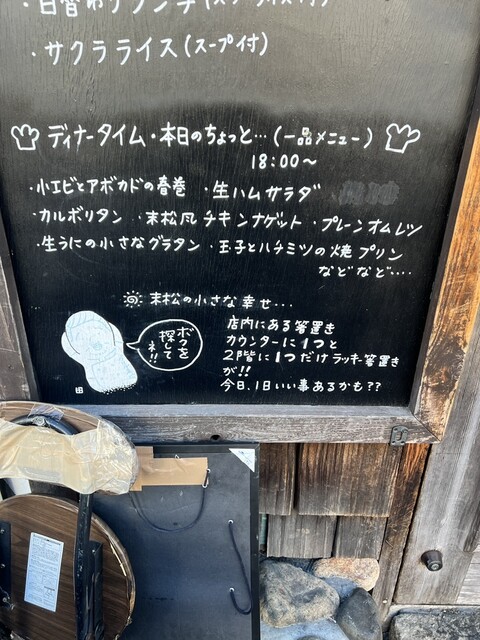 ・日替わりランチ(スープライス付)
・サクラライス(スープ付)
ディナータイム・本日のちょっと…(一品メニュー)
18:00〜
・小エビとアボカドの春巻 ・生ハムサラダ
・カルボリタン ・末松風チキンナゲット ・プレーンオムレツ
・生うにの小さなグラタン ・玉子とハチミツの焼プリン
などなど‥‥
末松の小さな幸せ…
ボクを
探して
ネ!!
店内にある箸置き
カウンターに1つと
2階に1つだけラッキー箸置き
が!!
今日、1日いい事あるかも??